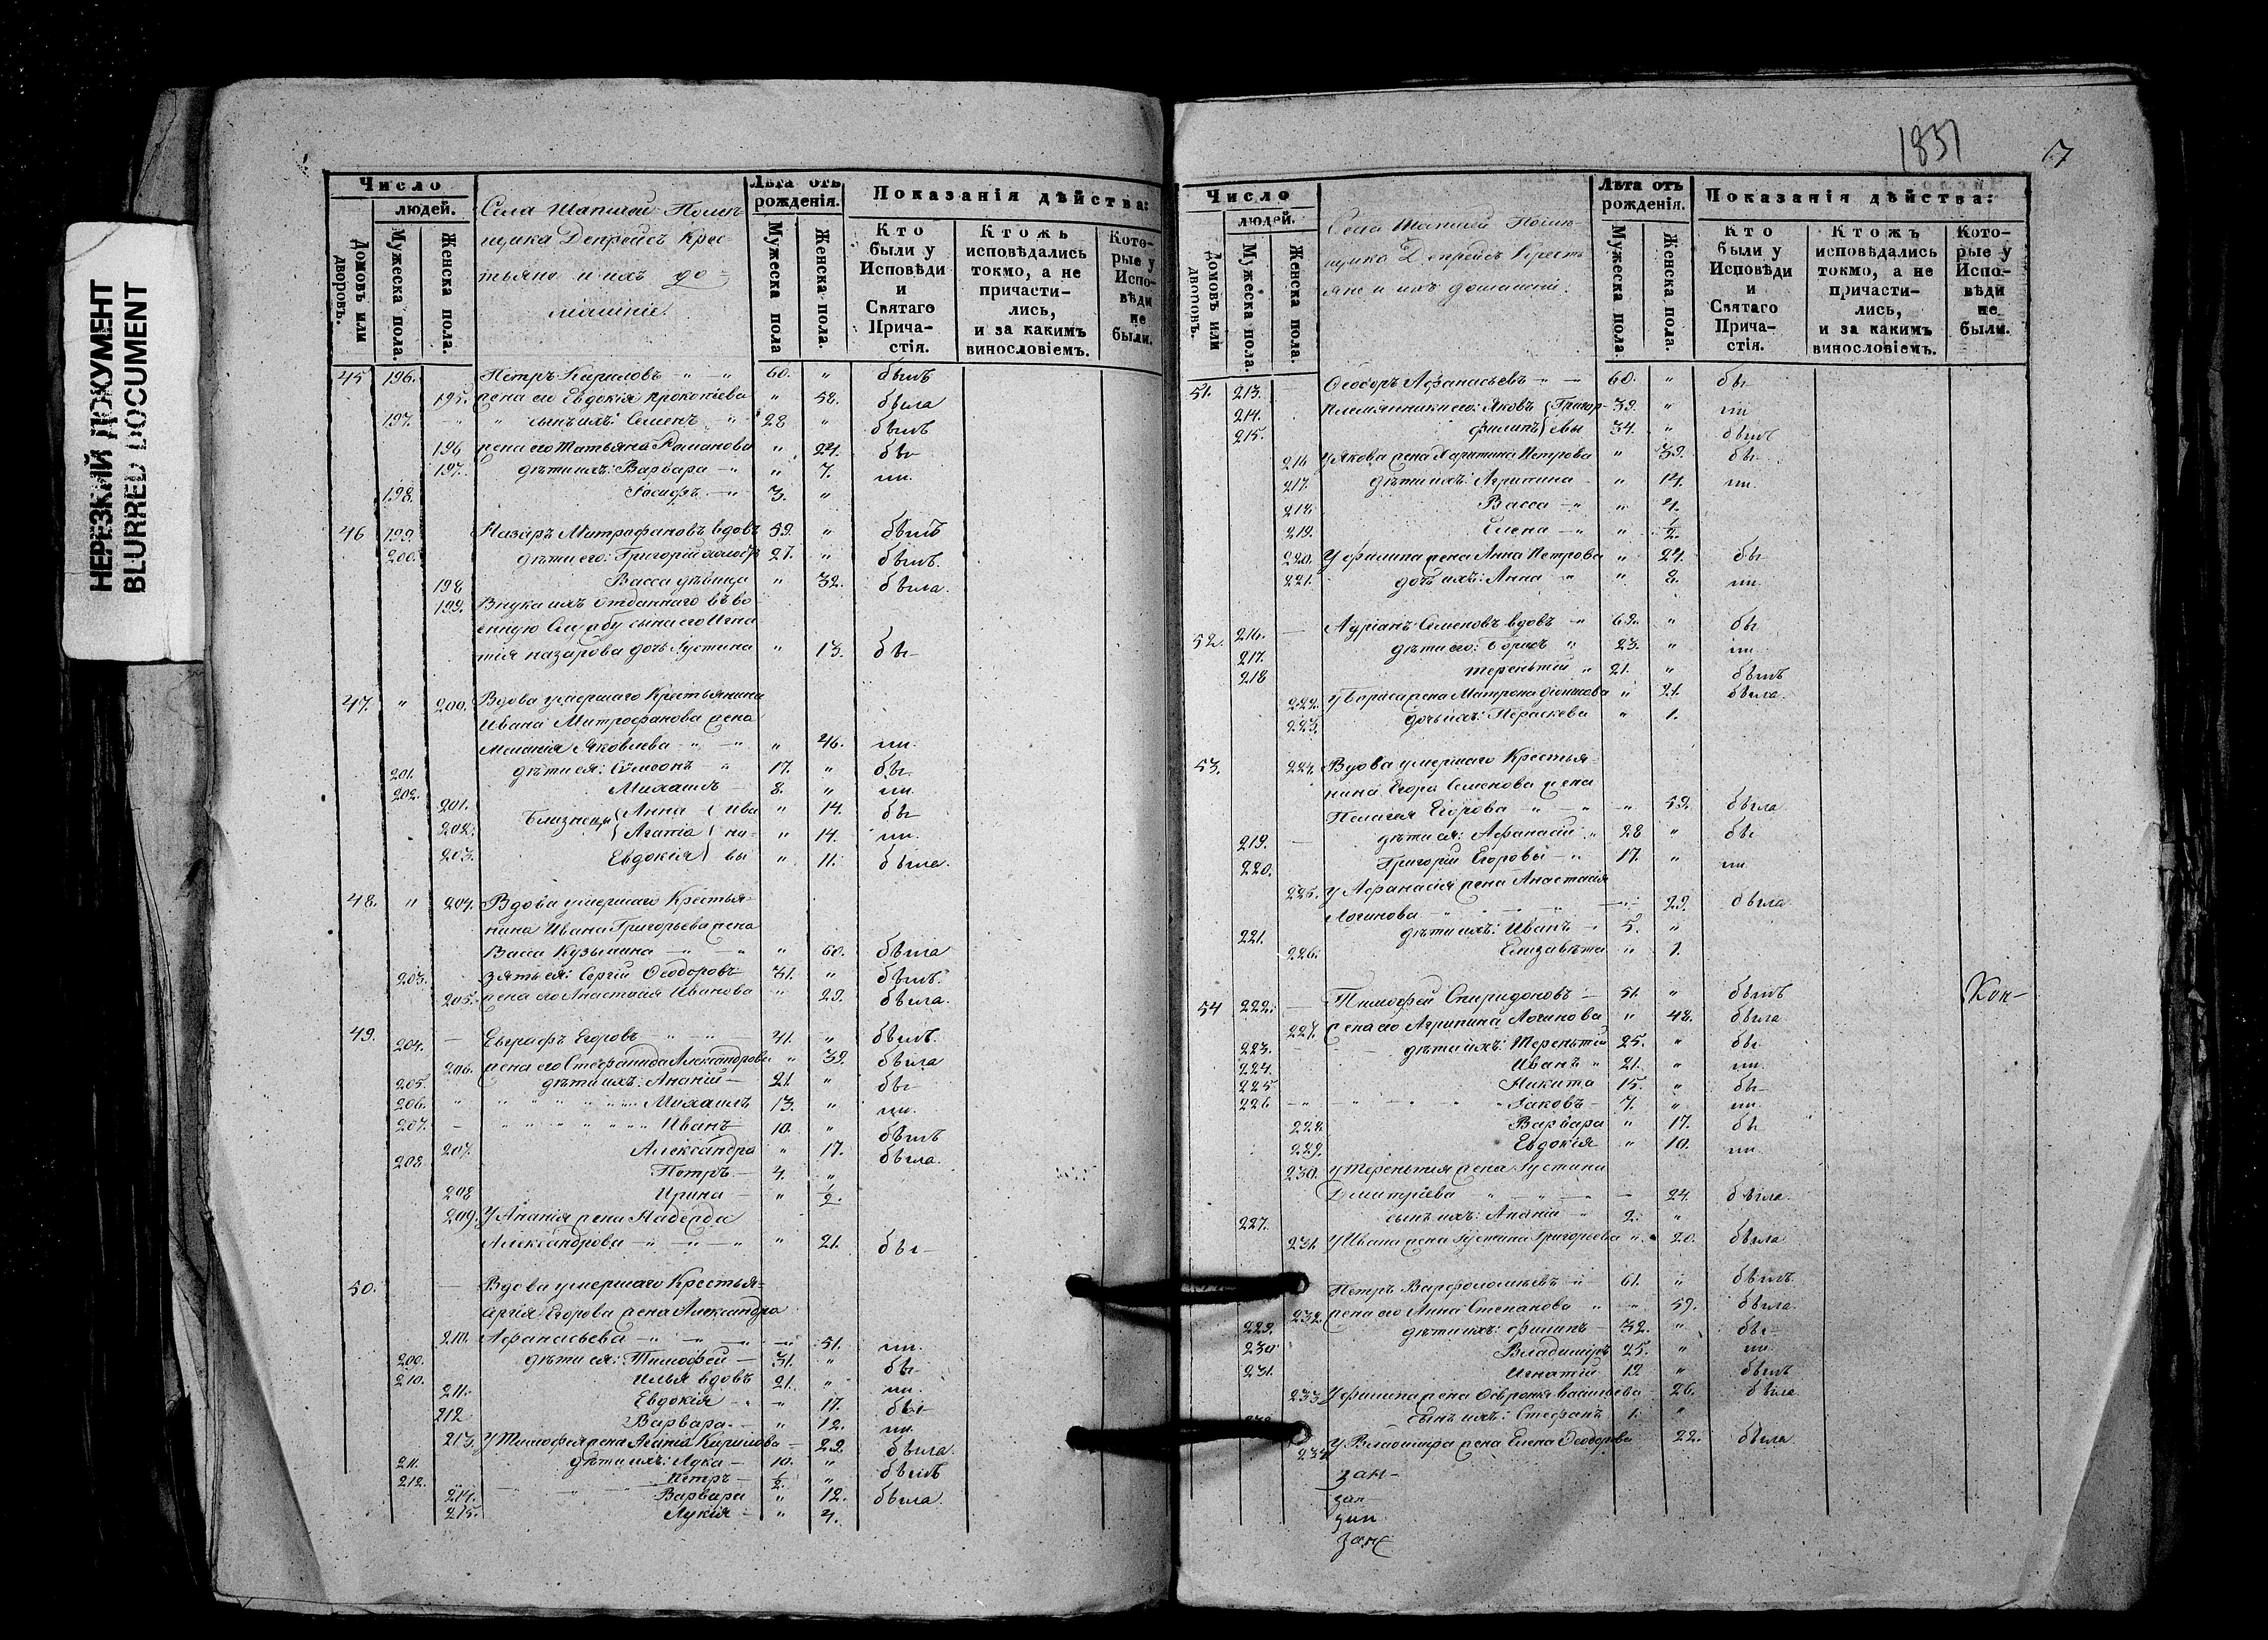 НЕРЕЗКИЙ ДОКУМЕНТ
BLURRED DOCUMENT
Число
людей.
Домовъ или дворовъ.
Мужеска пола.
Женска пола.
Села Шаптей Помѣ-
щика Депрейсъ Крес-
тьяне и ихъ до=
машніе.
Лѣта отъ рожденія.
Мужеска пола
Женска пола.
Показанія дѣйства:
Кто были у Исповѣди и Святаго Прича-стія.
Ктожъ исповѣдались токмо, а не причасти-лись, и за какимъ винословіемъ.
Кото-рые у Испо-вѣди не были.
45 196. Петръ Кириловъ 60. " былъ
195. жена его Евдокія Прокопіева " 58. была
197. сынъ ихъ: Семенъ 28 " былъ
196 жена его Татьяна Романова " 24. бы
197. дѣти ихъ: Варвара " 7. ли.
198. Іосифъ 3. "
46 199. Назаръ Митрофановъ вдовъ 59. " былъ
200. дѣти его: Григорій холостъ 27. " былъ.
198 Васса дѣвица " 32. была.
199. Внука ихъ отданнаго въ во-
енную Службу сына его Игна
тія Назарова дочь Іустина " 13. бы-
47. " 200. Вдова умершаго Крестьянина
Ивана Митрофанова жена
Меланія Яковлева " 46. ли.
201. дѣти ея: Сѵмеонъ 17. " бы
202. Михаилъ 8. " ли
201. Близнецы Анна Ива " 14. бы
202. Агапіа но- " 14. ли.
203. Евдокія вы " 11. была.
48. " 204. Вдова умершаго Крестья-
нина Ивана Григорьева жена
Васса Кузьмина " 60. была
203. зять ея: Сергій Ѳеодоровъ 31. " былъ.
205. жена его Анастасія Иванова " 29. была.
49. 204. Евграфъ Егоровъ 41. " былъ.
206. жена его Стефанида Александрова " 39. была
205. дѣти ихъ: Ананій 21. " бы
206. Михаилъ 13. " ли.
207. Иванъ 10. " былъ
207. Александра " 17. была.
208. Петръ 4. "
208 Ирина " 1/2.
209. У Ананія жена Надежда
Александрова " 21. бы-
50. Вдова умершаго Крестья=
Сергія Егорова жена Александра
210. Афанасьева 51. ли.
209. дѣти ея: Тимофей 31. " бы
210. Илья вдовъ 21. " ли.
211. Евдокія 17. бы
212 Варвара " 12. ли.
213. У Тимофея жена Агапія Кирилова 29. была
211. дѣти ихъ: Лука 10. " былъ
212. Петръ 1/2. "
214. Варвара " 12. была.
215. Лукія " 4.
1837
7
Число
людей.
Домовъ или дворовъ.
Мужеска пола.
Женска пола.
Села Шаптей Помѣ-
щика Депрейсъ Кресть
яне и ихъ домашніи.
Лѣта отъ рожденія.
Мужеска пола
Женска пола.
Показанія дѣйства:
Кто были у Исповѣди и Святаго Прича-стія.
Ктожъ исповѣдались токмо, а не причасти-лись, и за какимъ винословіемъ.
Кото-рые у Испо-вѣди не были.
51. 213. Ѳеодоръ Афанасьевъ 60. " бы
214. Племянники его: Яковъ Григор- 39. " ли
215. Филипъ евы 34. " былъ
216 У Якова жена Харитина Петрова " 39. бы
217. дѣти ихъ: Агрипина " 14. ли.
218. Васса " 4.
219. Елена " 1/2.
220. У Филипа жена Анна Петрова " 24. бы
221. дочь ихъ: Анна " 8. ли.
52. 216. Адріанъ Семеновъ вдовъ 62. " бы
217. дѣти его: Борисъ 23. " ли
218 Терентій 21. " былъ
222. У Бориса жена Матрона " 21. была.
223. дочь ихъ: Параскева " 1.
53. 224. Вдова умершаго Крестья=
нина Егора Семенова жена
Пелагія Егорова 59. была
219. дѣти ея: Афанасій 28 " бы
220. Григорій Егоровы 17. " ли.
225. У Афанасія жена Анастасія
Логинова 29. была
221. дѣти ихъ: Иванъ 5. "
226. Елизавѣта " 1.
54 222. Тимофей Спиридоновъ 51. " былъ Кон-
227. Жена его Агрипина Логинова " 48. была
223. дѣти ихъ: Терентій 25. " бы
224. Иванъ 21. " ли.
225 Никита 15. " бы
226 Іаковъ 7. " ли.
228. Варвара " 17. бы
229. Евдокія " 10. ли
230. У Терентія жена Іустина
Дмитріева 24. была.
227. сынъ ихъ: Ананій 2. "
231. У Ивана жена Іустина Григорьева " 20. была
Петръ Варфоломѣевъ 61. " былъ.
232. жена его Анна Степанова 59. была.
229. дѣти ихъ: Филипъ 32. " бы
230 Владиміръ 25. " ли
231. Игнатій 12 " былъ
233 У Филипа жена Ѳевронія 26. была
сынъ ихъ: Стефанъ 1. "
234 У Владиміра жена Елена Ѳеодорова 22. была